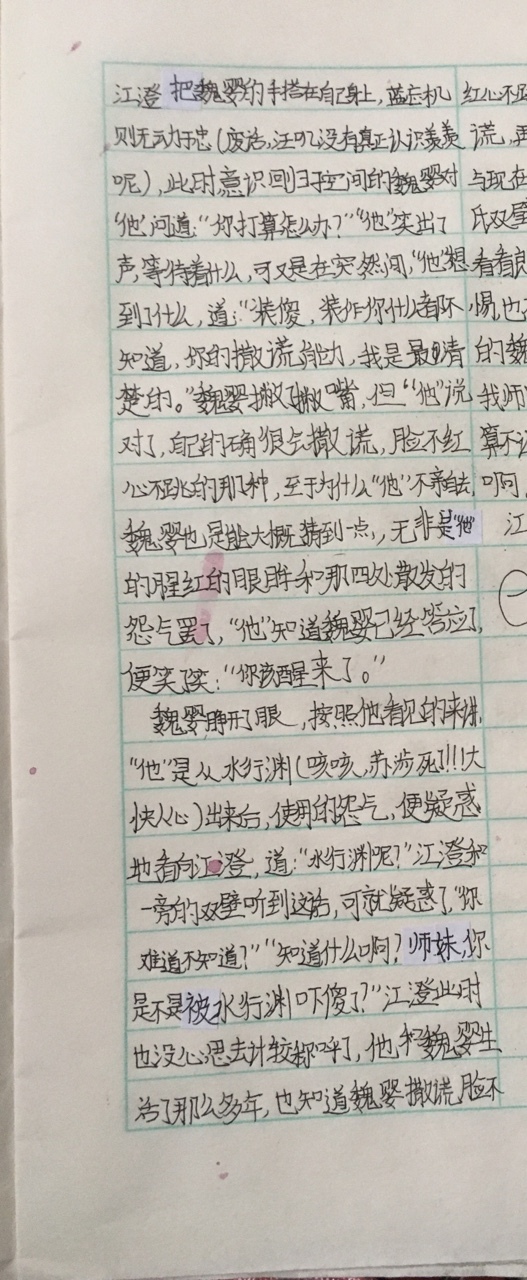 江澄把魏婴的手搭在自己身上,蓝忘机
则无动于忠(废话,汪叽没有真正认识羡羡
呢),此时意识回归于空间的魏婴对
“他”问道:“你打算怎么办?”“他”笑出了
声,等待着什么,可又是在突然间,“他”想
到了什么,道:“装傻,装作你什么都不
知道,你的撒谎能力,我是最清
楚的。”魏婴撇了撇嘴,但“他”说
对了,自己的确很会撒谎,脸不红
心不跳的那种,至于为什么“他”不亲自去,
魏婴也是能大概猜到一点,,无非是“他”
的腥红的眼眸和那四处散发的
怨气罢了,“他”知道魏婴已经答应了,
便笑了笑:“你该醒来了。”
魏婴睁开了眼,按照他看见的来讲,
“他”是从水行渊(咳咳,苏涉死了!!!大
快人心)出来后,使用的怨气,便疑惑
地看向江澄,道:“水行渊呢?”江澄和
一旁的双壁听到这话,可就疑惑了,“你
难道不知道?”“知道什么啊?师妹,你
是不是被水行渊吓傻了?”江澄此时
也没心思去计较称呼了,他和魏婴生
活了那么多年,也知道魏婴撒谎脸不
红心不
谎,再
与现在
氏双壁
看着
惕,也
的魏
我师
算不
啊,
江